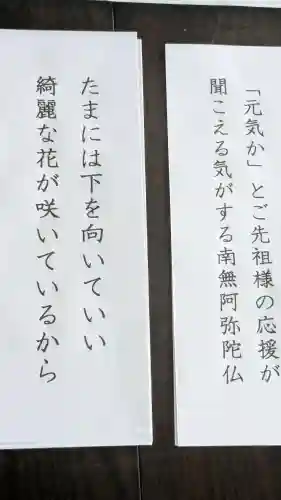 「元気か」とご先祖様の応援が
聞こえる気がする南無阿弥陀仏
たまには下を向いていい
綺麗な花が咲いているから